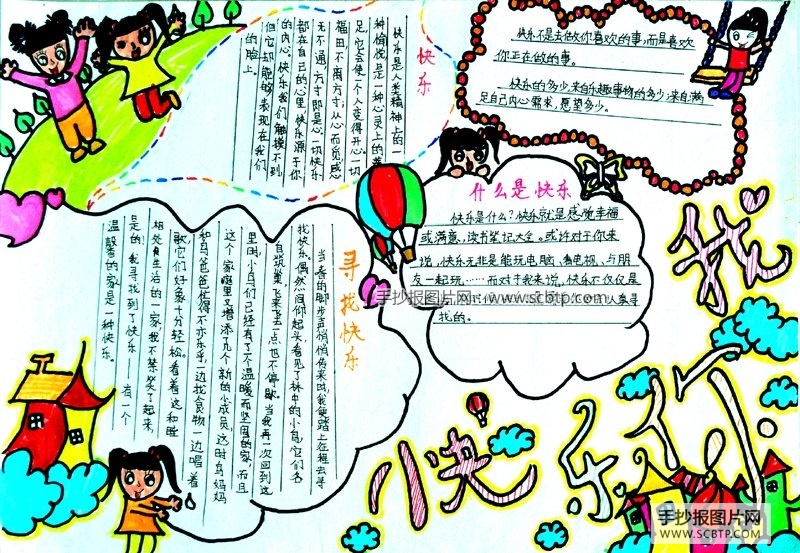 快乐不是去做你喜欢的事,而是喜欢
你正在做的事。
快乐的多少,来自乐趣事物的多少;来自满
足自己内心需求、愿望多少。
快乐
快乐是人类精神上的一
种愉悦是一种心灵上的满
足它会使一个人变得开心一切
福田不离方寸;从心而觅感
无不通,方寸即是心一切快乐
都在自己的心里快乐源于你
的内心,快乐我们触摸不到
但它却能够表现在我们
的脸上。
什么是快乐
快乐是什么?快乐就是感觉幸福
或满意,读书笔记大全。或许对于你来
说,快乐无非是能玩电脑、看电视、与朋
友一起玩……而对于我来说,快乐不仅仅是
人寻
找的。
寻找快乐
当春的脚步声悄悄来时我便踏上去寻
找快乐。偶然间仰起头看见了林中的小鸟,它们各
自筑巢飞来飞去一点也不停歇当我再一次回到这
里时,小鸟们已经有了个温暖而坚固的家,而且
这个家庭里又增添了几个新的小成员,这时鸟妈妈
和鸟爸爸忙得不亦乐乎,一边找食物一边唱着
歌,它们好象十分轻松。看着这和睦
相处有生活的一家,我不禁笑了起来,
是的,我寻找到了快乐——有一个
温馨的家是一种快乐。
手抄报图片网 - www.scbtp.com
我
快乐
手抄报图片网
SCBTP.COM